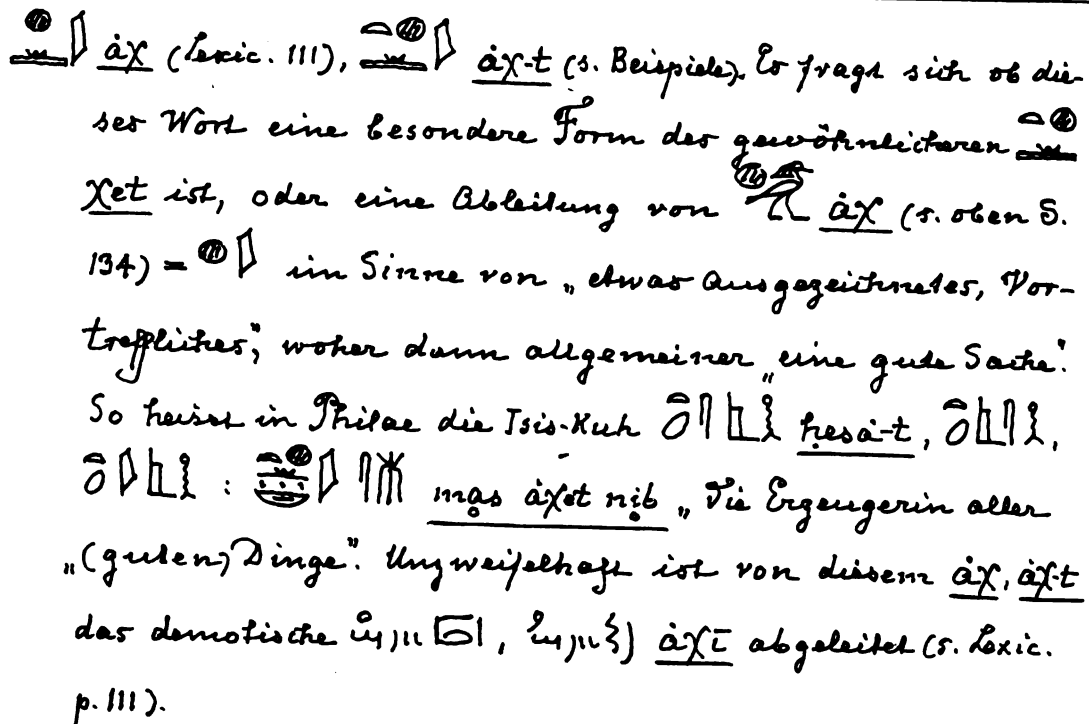 ȧχ (Lexic. 111), ȧχ-t (s. Beispiele). Es fragt sich ob die-
ses Wort eine besondere Form des gewöhnlicheren
χet ist, oder eine Ableitung von ȧχ (s. oben S.
134) = im Sinne von „etwas Ausgezeichnetes, Vor-
treffliches", woher dann allgemeiner „eine gute Sache".
So heisst in Philae die Isis-Kuh ḥesȧ-t,
: mạs ȧχet nịb „die Erzeugerin aller
„(guten) Dinge". Unzweifelhaft ist von diesem ȧχ, ȧχ-t
das demotische , ȧχī abgeleitet (s. Lexic.
p. 111).